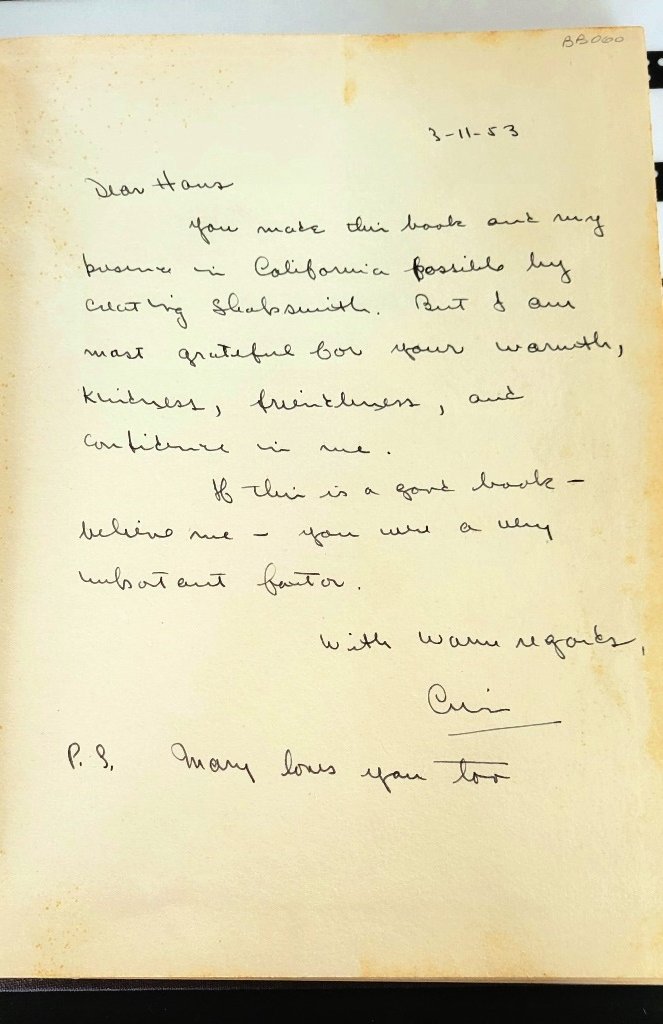 BB060
3-11-53
Dear Hans
You made this book and my
presence in California possible by
creating Shopsmith. But I am
most grateful for your warmth,
kindness, friendliness, and
confidence in me.
If this is a good book –
believe me – you were a very
important factor.
With warm regards,
P.S. Mary loves you too